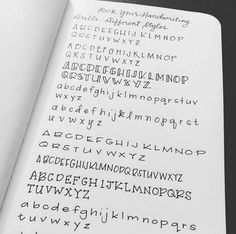 Rock Your Handwriting
Drills: Different Styles
ABCDEFGHIJKLMNOP
QRSTUVWXYZ
ABCDEFGHIJKLMNOP
QRSTUVWXYZ
ABCDEFGHIJKLMNOP
QRSTUVWXYZ
abcdefghijklmnopqrstuv
wxyz
abcdefghijklmnopqrst
uvwxyz
ABCDEFGHIJKLMNOPQ
RSTUVWXYZ
ABCDEFGHIJKLMNOPQRS
TUVWXYZ
ABCDEFGHIJKLMNOPQRS
TUVWXYZ
abcdefghijklmnopqrs
tuvwxyz